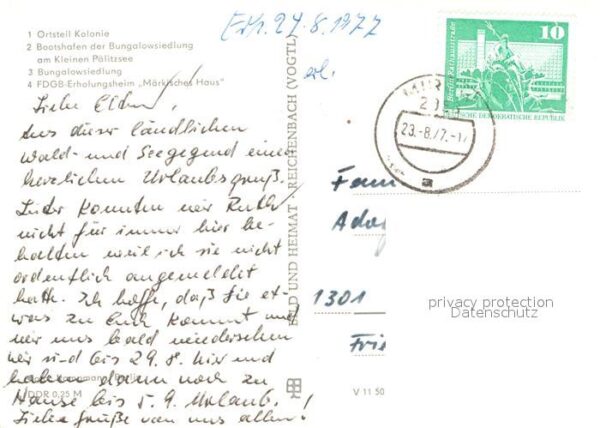 Erh. 24.8.1977
erl.
1 Ortsteil Kolonie
2 Bootshafen der Bungalowsiedlung
am Kleinen Pälitzsee
3 Bungalowsiedlung
4 FDGB-Erholungsheim „Märkisches Haus"
Liebe Eltern,
Aus dieser ländlichen
Wald- und Seegegend einen
herzlichen Urlaubsgruß.
Leider konnten wir Ruth
nicht für immer hier be-
halten weil ich sie nicht
ordentlich angemeldet
hatte. Ich hoffe, daß sie et-
was zu Euch kommt und
wir uns bald wiedersehen
wir sind bis 29.8. hier und
haben dann noch zu
Hause bis 5.9. Urlaub.
Liebe Grüße von uns allen!
DDR 0,25 M
BILD UND HEIMAT · REICHENBACH (VOGTL)
V 11 50
10
Berlin, Rathausstraße
DEUTSCHE DEMOKRATISCHE REPUBLIK
23.-8.77.-17
a
Fam
Adol
1301
Frie
privacy protection
Datenschutz